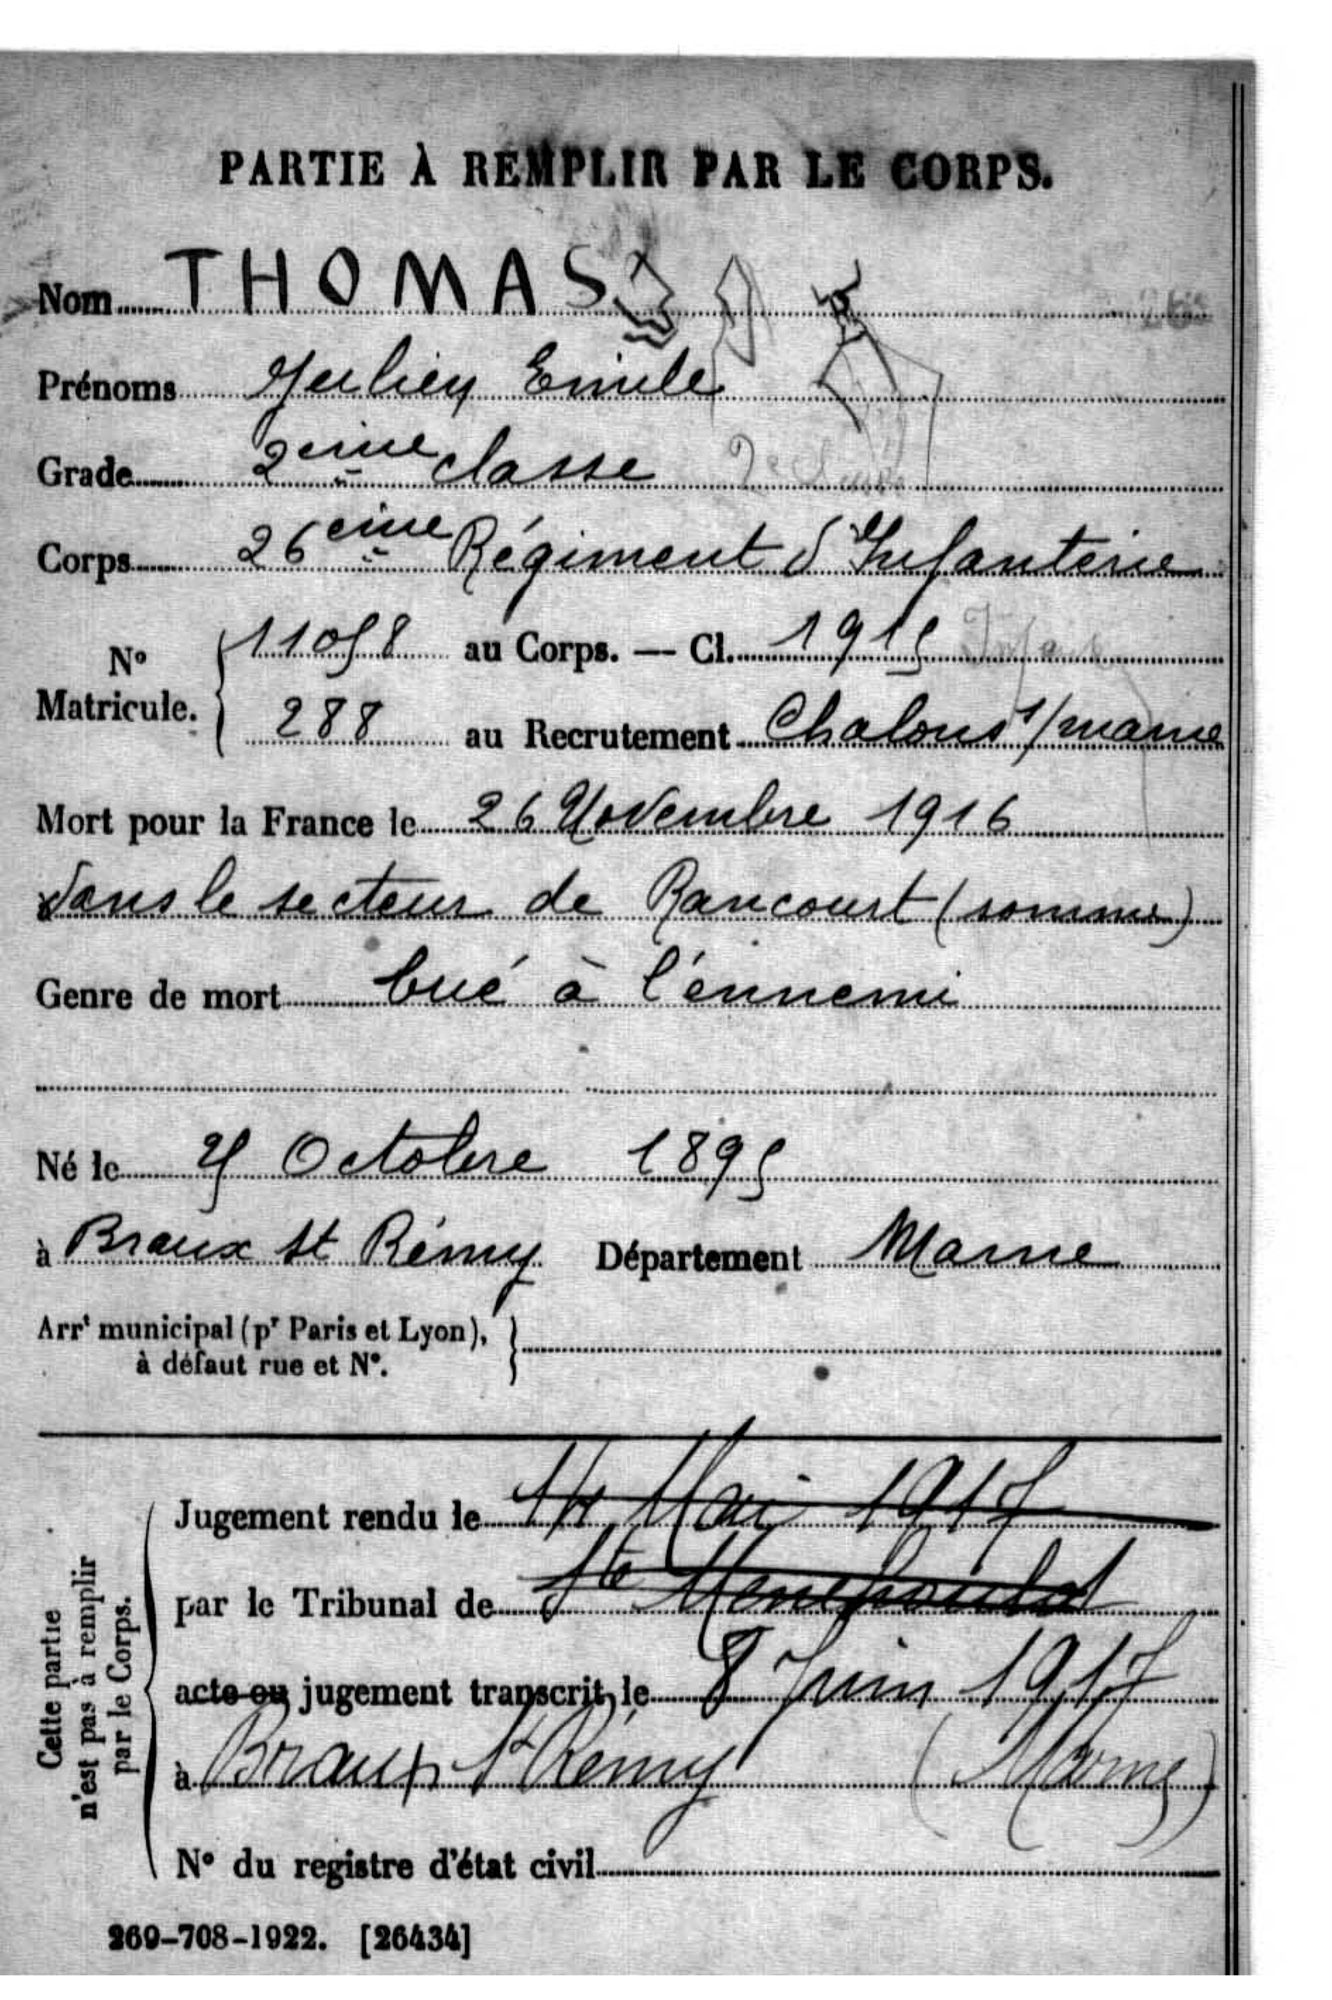 PARTIE À REMPLIR PAR LE CORPS.
Nom THOMAS
Prénoms Julien Emile
Grade 2eme classe
Corps 26eme Régiment d'Infanterie
N° Matricule. 11058 au Corps. — Cl. 1915
288 au Recrutement Chalons s/marne
Mort pour la France le 26 Novembre 1916
dans le secteur de Rancourt (somme)
Genre de mort tué à l'ennemi
Né le Octobre 1895
à Braux St Rémy Département Marne
Arrt municipal (pr Paris et Lyon),
à défaut rue et N°.
Cette partie
n'est pas à remplir
par le Corps.
Jugement rendu le 14 Mai 1917
par le Tribunal de Ste Menehould
acte ou jugement transcrit le 8 Juin 1917
à Braux St Rémy (Marne)
N° du registre d'état civil
269-708-1922. [26434]